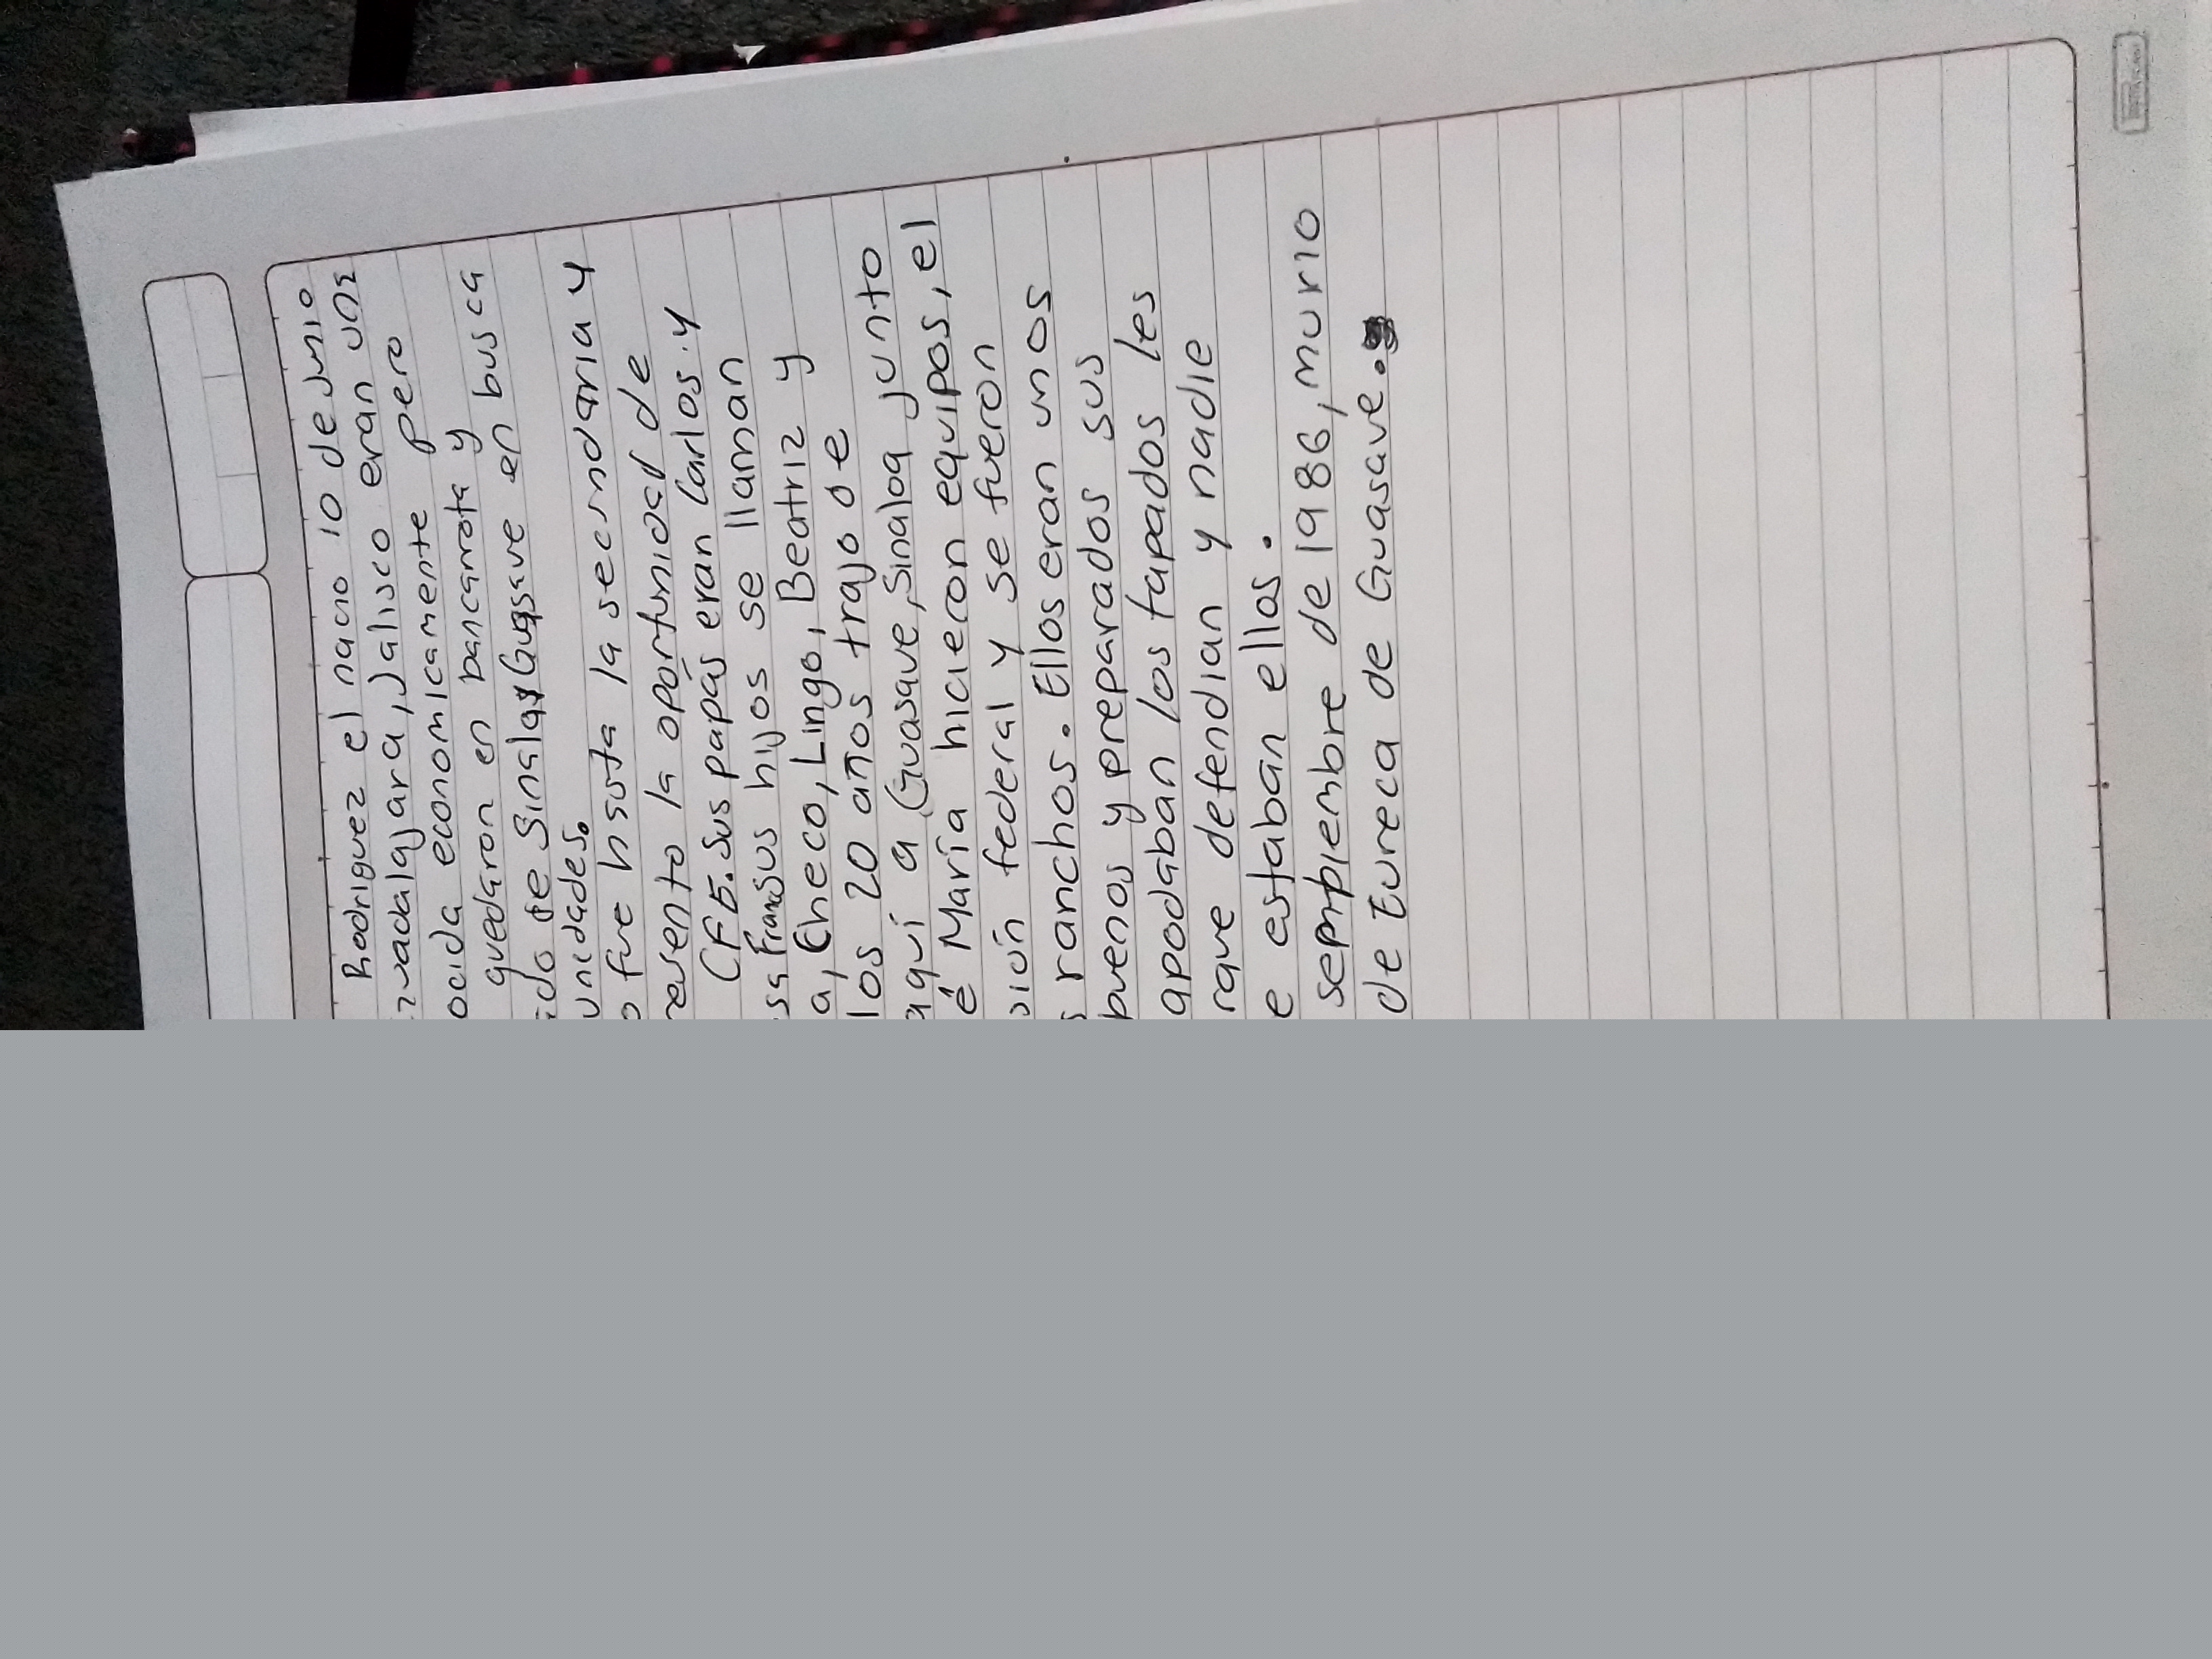 Rodriguez el nacio 10 de Junio
uadalajara, Jalisco eran uns
ocida economicamente pero
quedaron en bancarrota y
ido de Sinaloa, Guasave en busca
unidades.
o fue hasta la secundaria y
resento la oportunidad de
CFE. Sus papás eran Carlos y
sa Fran sus hijos se llaman
a, Checo, Lingo, Beatriz y
los 20 años trajo de
aqui a Guasave, Sinaloa junto
é María hicieron equipos, el
sión federal y se fueron
s ranchos. Ellos eran unos
buenos y preparados sus
apodaban los tapados les
rque defendian y nadie
e estaban ellos.
sempiembre de 1986, murio
de Eureca de Guasave.